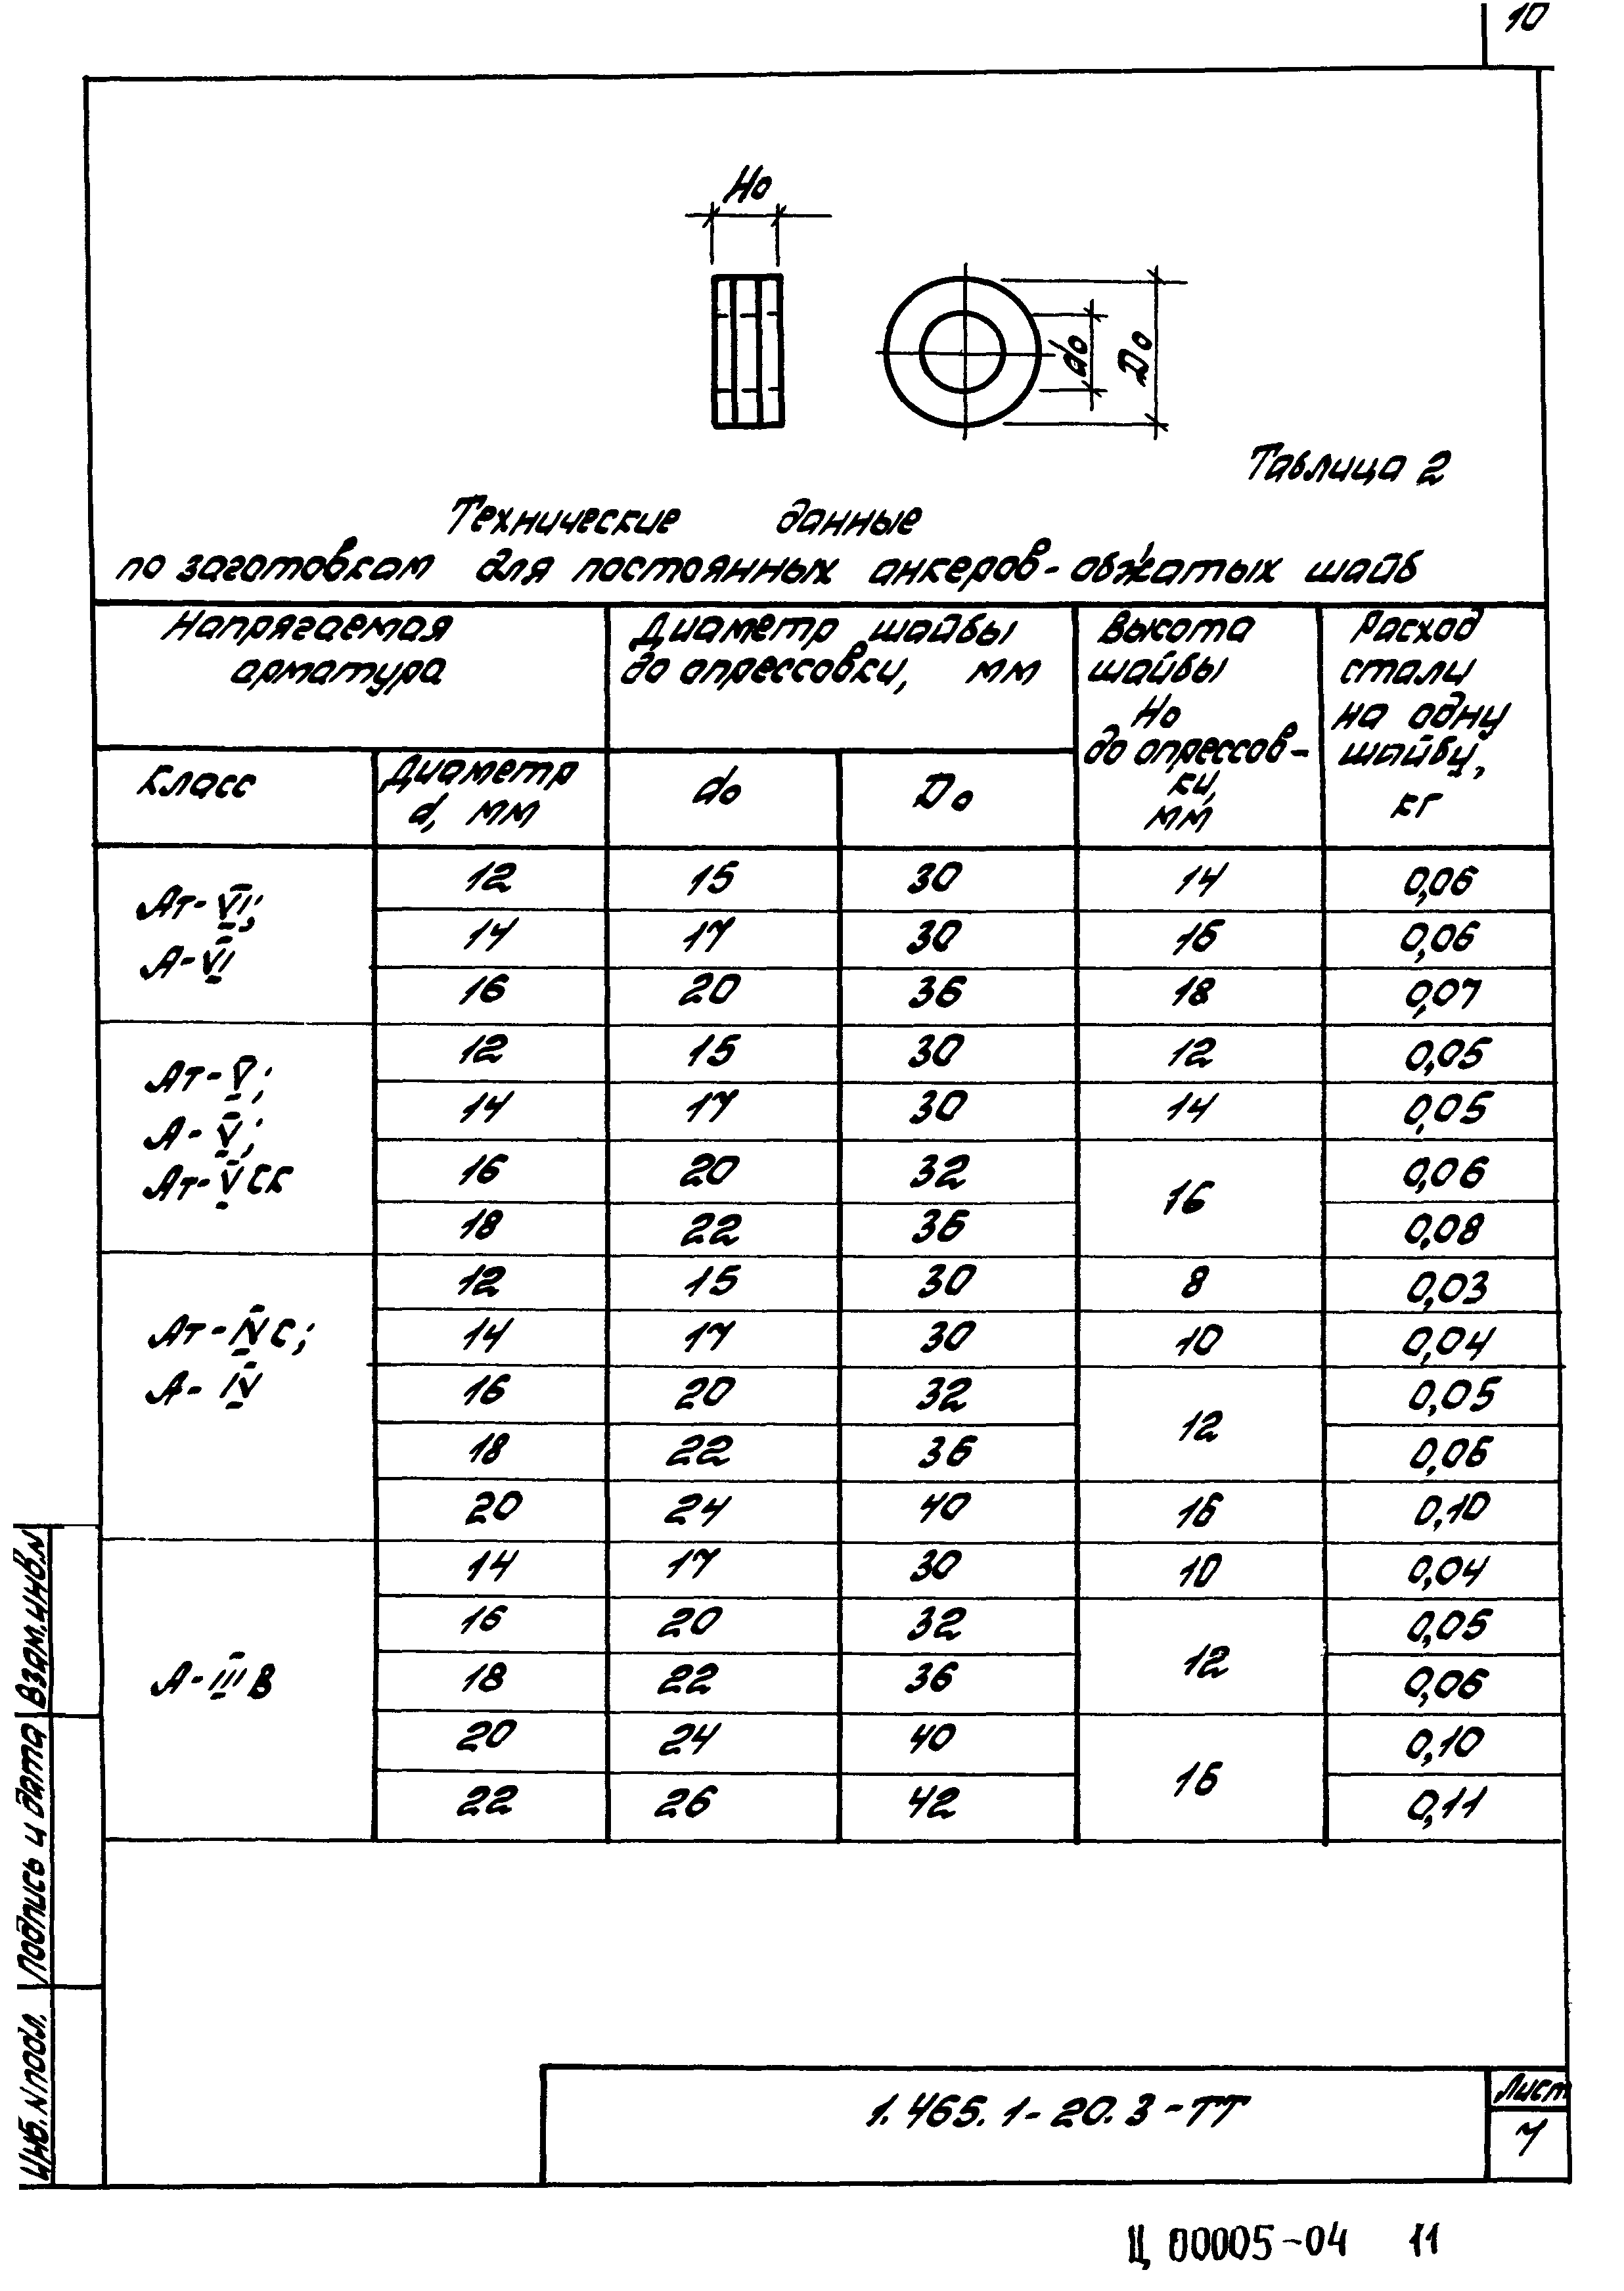 10
Но
do
Do
Таблица 2
Технические данные
по заготовкам для постоянных анкеров-обжатых шайб
Напрягаемая арматура
Диаметр шайбы до опрессовки, мм
Высота шайбы Но до опрессов-ки, мм
Расход стали на одну шайбу, кг
Класс
Диаметр d, мм
do
Do
Ат-VI;
А-VI
12 15 30 14 0,06
14 17 30 16 0,06
16 20 36 18 0,07
Ат-V;
А-V;
Ат-Vск
12 15 30 12 0,05
14 17 30 14 0,05
16 20 32 16 0,06
18 22 36 0,08
Ат-IVС;
А-IV
12 15 30 8 0,03
14 17 30 10 0,04
16 20 32 12 0,05
18 22 36 0,06
20 24 40 16 0,10
А-IIIВ
14 17 30 10 0,04
16 20 32 12 0,05
18 22 36 0,06
20 24 40 16 0,10
22 26 42 0,11
Инв. N подл.
Подпись и дата
Взам.инв.N
1.465.1-20.3-ТТ
Лист
7
Ц 00005-04 11